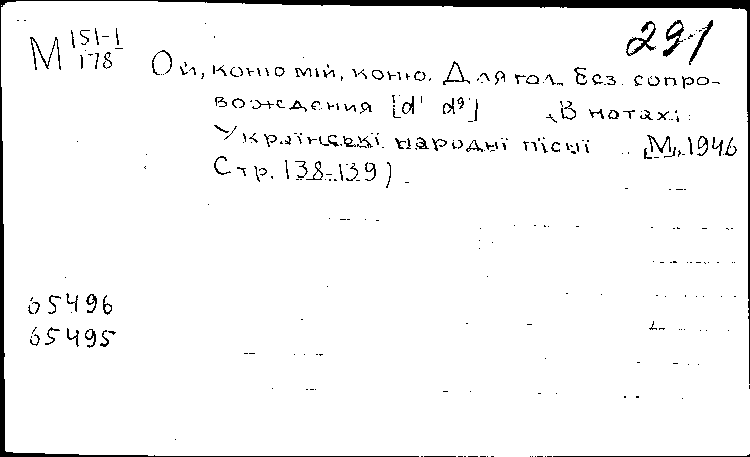 291
М 151-1
178
Ой, коню мій, коню. Для гол. без сопро-
вождения [d¹ d²] (В нотах:
Українські народні пісні М., 1946
Стр. 138-139).
65496
65495